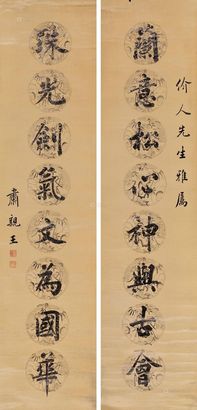 价人先生雅属
蘭意松心神與古會
珠光劍氣文為國華
肅親王